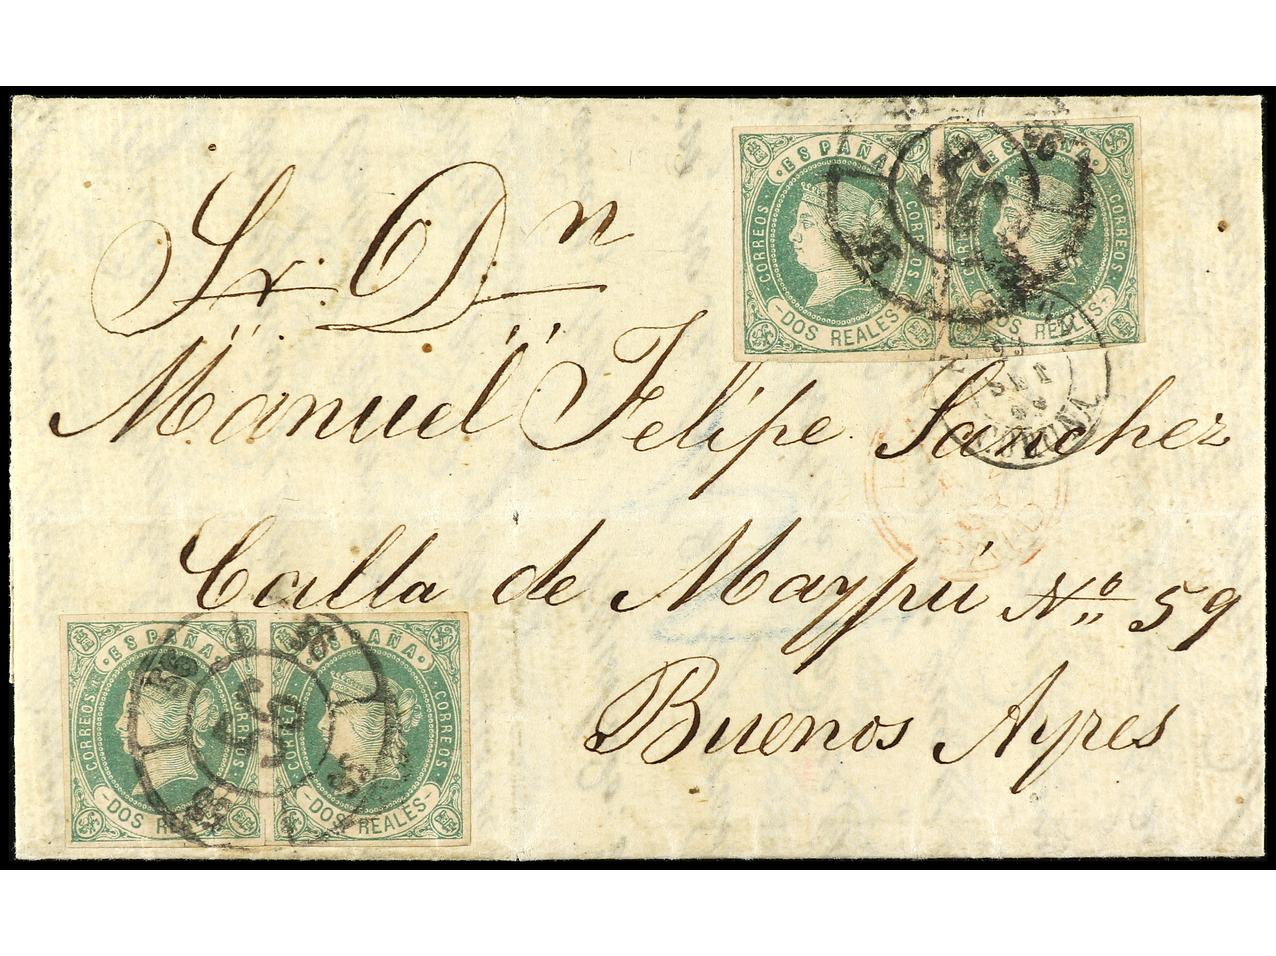 ESPAÑA ESPAÑA
CORREOS CORREOS CORREOS CORREOS
DOS REALES DOS REALES
Sr. Dn
Manuel Felipe Sanchez
SET
CORUÑA
Calla de Maypú Nº 59
Buenos Ayres
ESPAÑA ESPAÑA
CORREOS CORREOS CORREOS CORREOS
DOS REALES DOS REALES